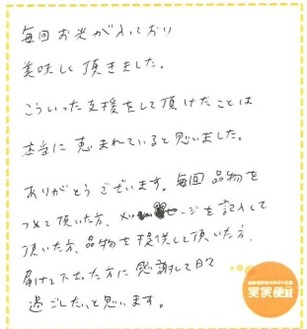 毎回お米が入っており
美味しく頂きました。
こういった支援をして頂けたことは
本当に恵まれていると思いました。
ありがとうございます。毎回品物を
つめて頂いた方、メッセージを記入して
頂いた方、品物を提供して頂いた方、
届けて下さった方に感謝して日々
過ごしたいと思います。
実家便